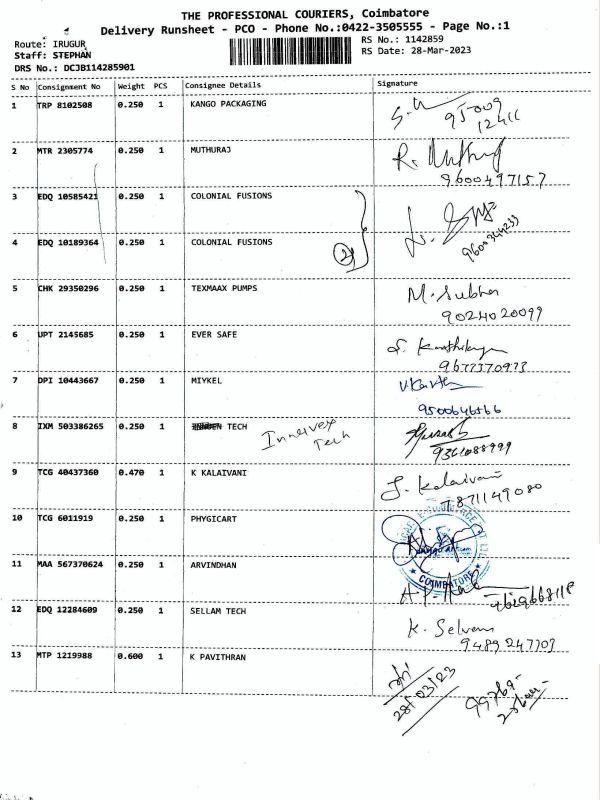 THE PROFESSIONAL COURIERS, Coimbatore
Delivery Runsheet - PCO - Phone No.:0422-3505555 - Page No.:1
Route: IRUGUR
RS No.: 1142859
Staff: STEPHAN
RS Date: 28-Mar-2023
DRS No.: DCJB114285901
S No Consignment No Weight PCS Consignee Details Signature
1 TRP 8102508 0.250 1 KANGO PACKAGING
95009
12411
2 MTR 2305774 0.250 1 MUTHURAJ
9600497157
3 EDQ 10585421 0.250 1 COLONIAL FUSIONS
4 EDQ 10189364 0.250 1 COLONIAL FUSIONS
2
9600344233
5 CHK 29350296 0.250 1 TEXMAAX PUMPS M. Subha
9024020099
6 UPT 2145685 0.250 1 EVER SAFE
9677370973
7 DPI 10443667 0.250 1 MIYKEL
9500646566
8 IXM 503386265 0.250 1 TECH Innervex
Tech
9361088999
9 TCG 40437360 0.470 1 K KALAIVANI J. Kalaivani
7871149080
10 TCG 6011919 0.250 1 PHYGICART
COIMBATORE
11 MAA 567370624 0.250 1 ARVINDHAN
12 EDQ 12284609 0.250 1 SELLAM TECH K. Selvam
9489247703
13 MTP 1219988 0.600 1 K PAVITHRAN
28/03/23